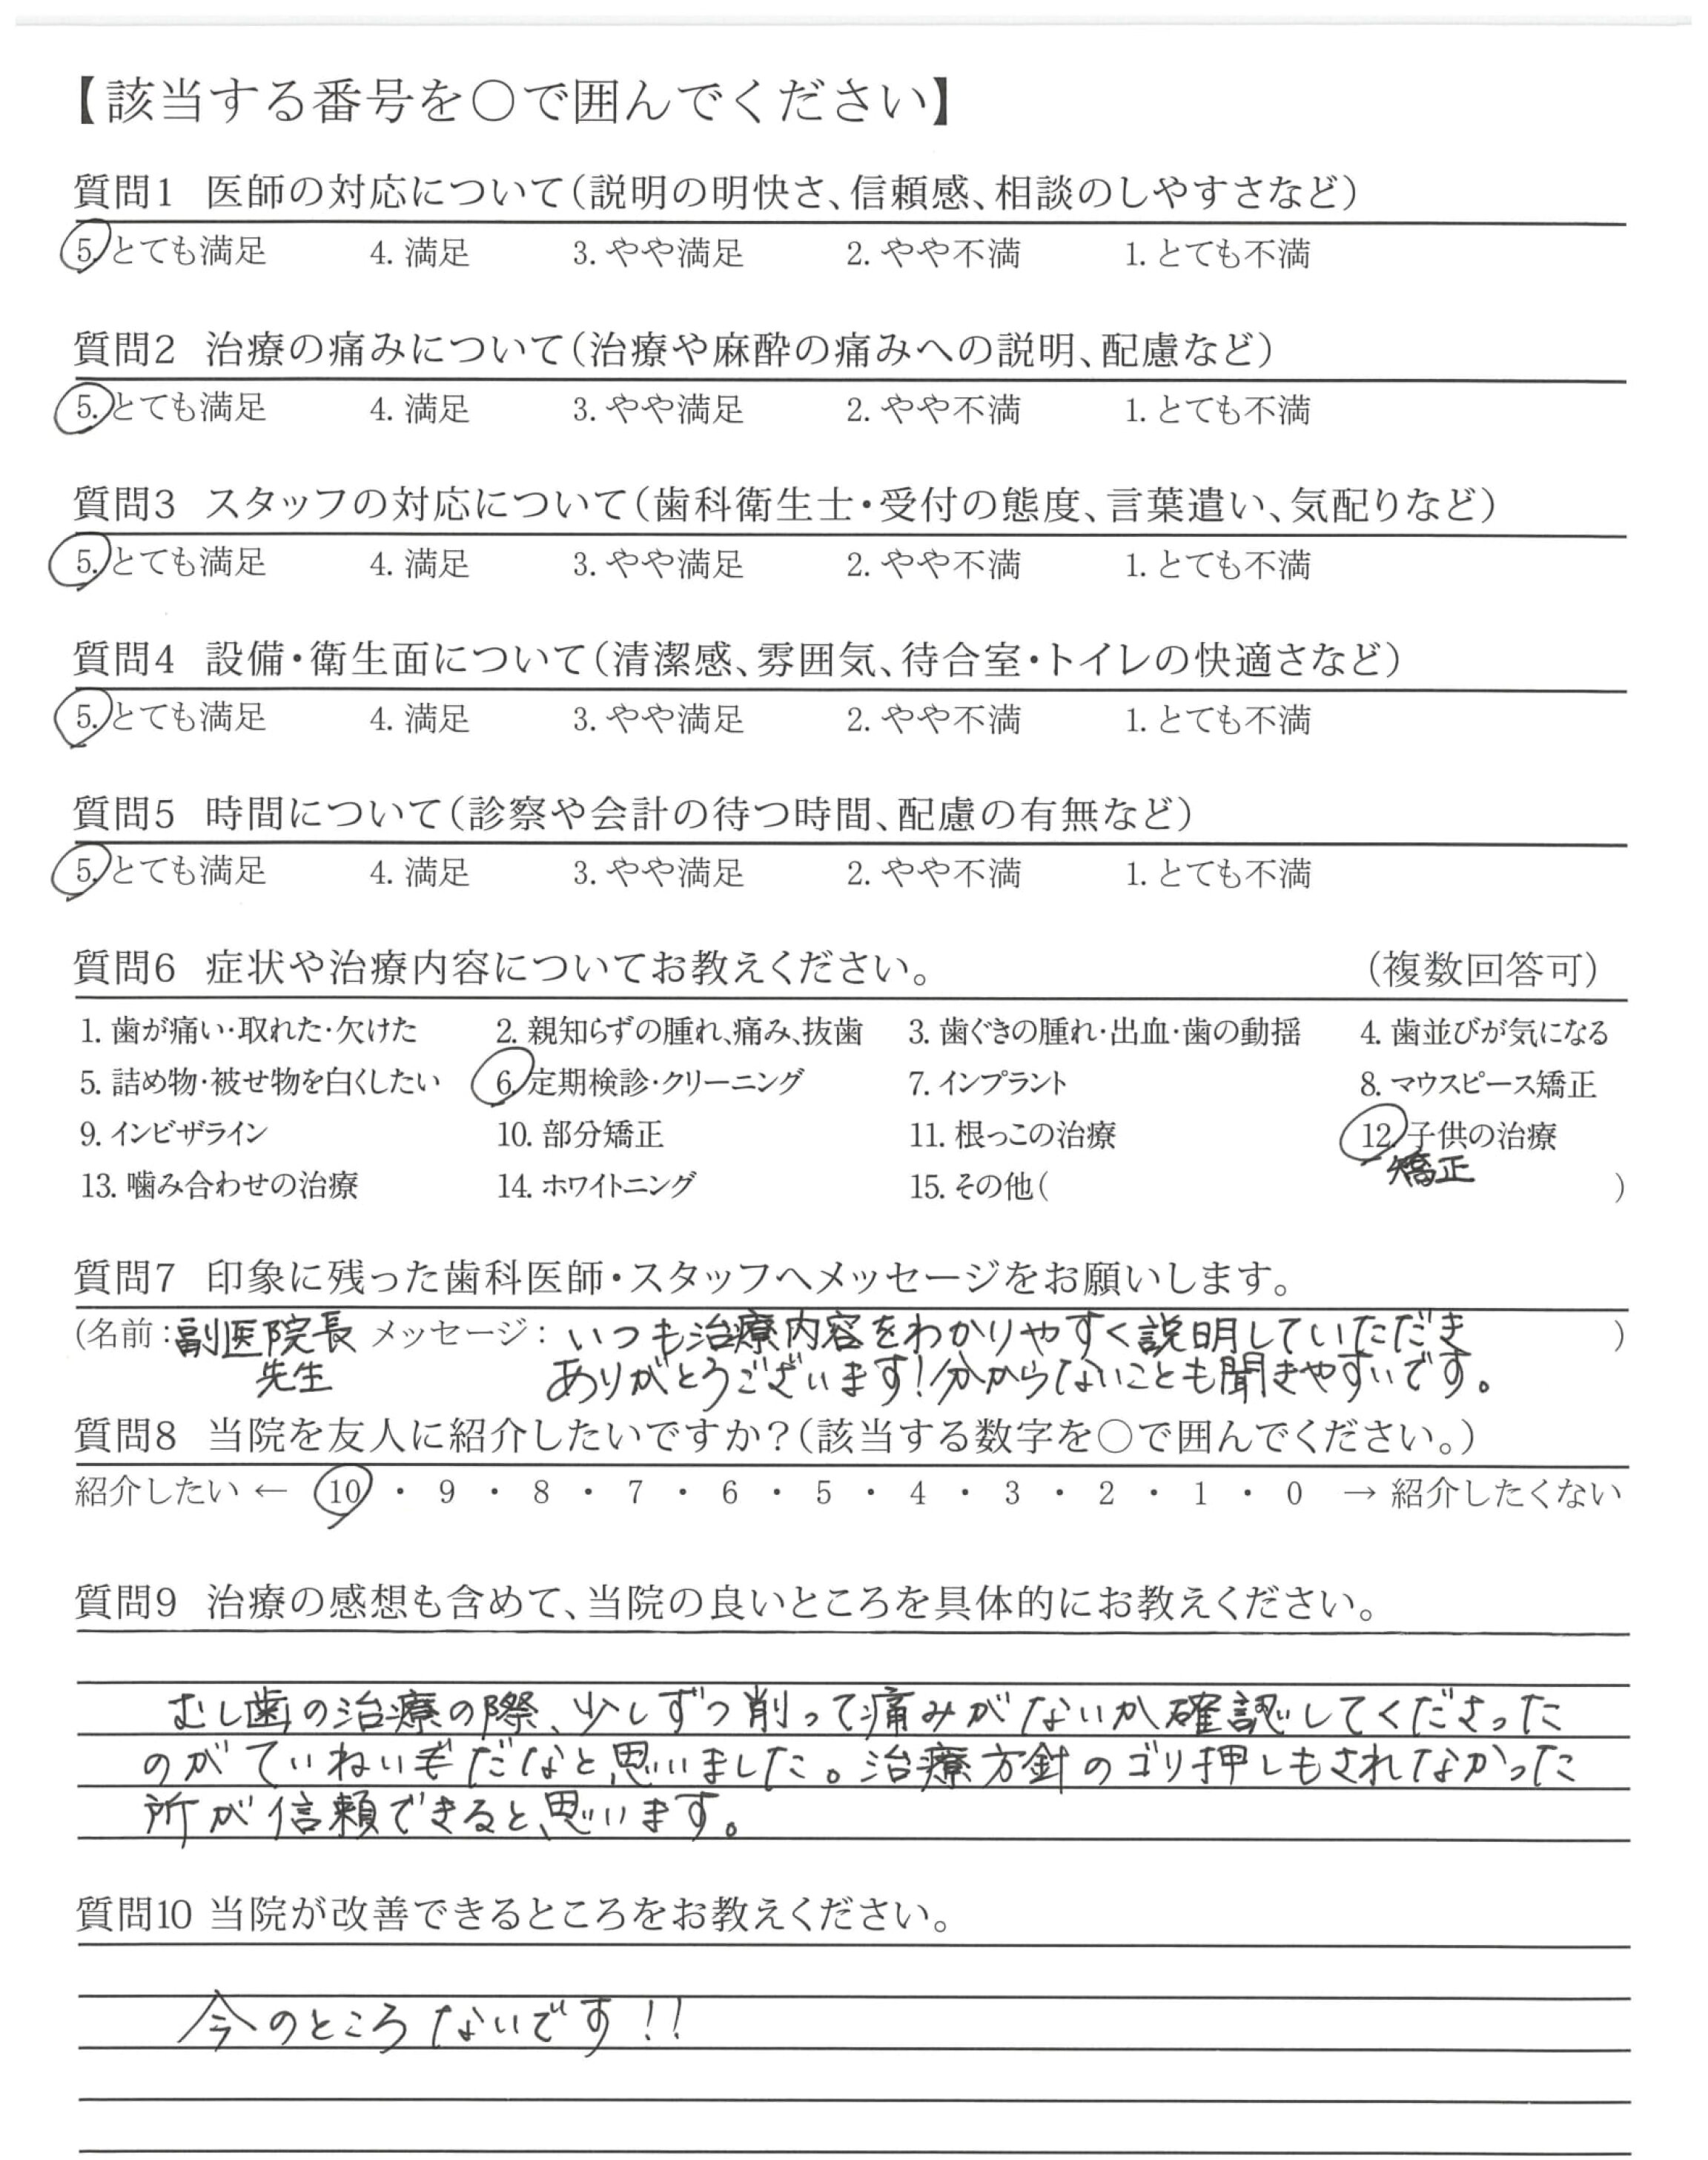 【該当する番号を○で囲んでください】
質問1 医師の対応について(説明の明快さ、信頼感、相談のしやすさなど)
5. とても満足 4. 満足 3. やや満足 2. やや不満 1. とても不満
質問2 治療の痛みについて(治療や麻酔の痛みへの説明、配慮など)
5. とても満足 4. 満足 3. やや満足 2. やや不満 1. とても不満
質問3 スタッフの対応について(歯科衛生士・受付の態度、言葉遣い、気配りなど)
5. とても満足 4. 満足 3. やや満足 2. やや不満 1. とても不満
質問4 設備・衛生面について(清潔感、雰囲気、待合室・トイレの快適さなど)
5. とても満足 4. 満足 3. やや満足 2. やや不満 1. とても不満
質問5 時間について(診察や会計の待つ時間、配慮の有無など)
5. とても満足 4. 満足 3. やや満足 2. やや不満 1. とても不満
質問6 症状や治療内容についてお教えください。 (複数回答可)
1. 歯が痛い・取れた・欠けた 2. 親知らずの腫れ、痛み、抜歯 3. 歯ぐきの腫れ・出血・歯の動揺 4. 歯並びが気になる
5. 詰め物・被せ物を白くしたい 6. 定期検診・クリーニング 7. インプラント 8. マウスピース矯正
9. インビザライン 10. 部分矯正 11. 根っこの治療 12. 子供の治療
矯正
13. 噛み合わせの治療 14. ホワイトニング 15. その他( )
質問7 印象に残った歯科医師・スタッフへメッセージをお願いします。
(名前:副医院長 メッセージ: いつも治療内容をわかりやすく説明していただき )
先生 ありがとうございます!分からないことも聞きやすいです。
質問8 当院を友人に紹介したいですか?(該当する数字を○で囲んでください。)
紹介したい ← 10 ・ 9 ・ 8 ・ 7 ・ 6 ・ 5 ・ 4 ・ 3 ・ 2 ・ 1 ・ 0 → 紹介したくない
質問9 治療の感想も含めて、当院の良いところを具体的にお教えください。
むし歯の治療の際、少しずつ削って痛みがないか確認してくださった
のがていねいだなと思いました。治療方針のゴリ押しもされなかった
所が信頼できると思います。
質問10 当院が改善できるところをお教えください。
今のところないです!!